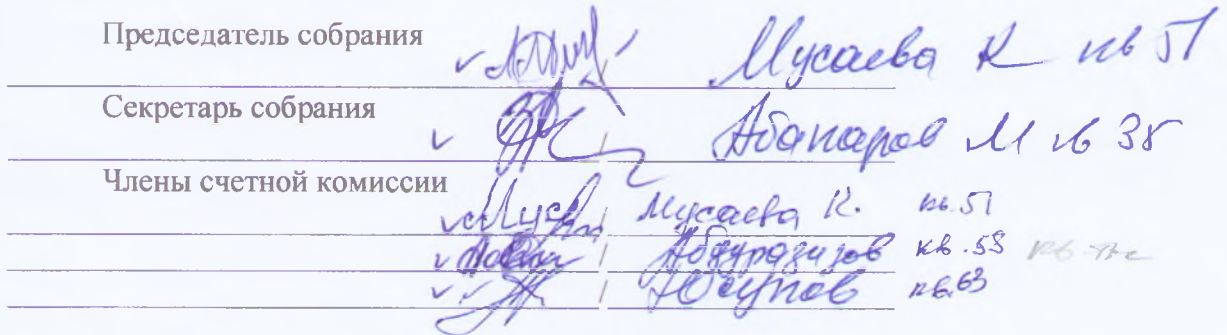 Председатель собрания Мусаева К кв 51
Секретарь собрания Абакаров М кв 38
Члены счетной комиссии
Мусаева К. кв. 51
Абдуразизов кв. 58
Юсупов кв. 63